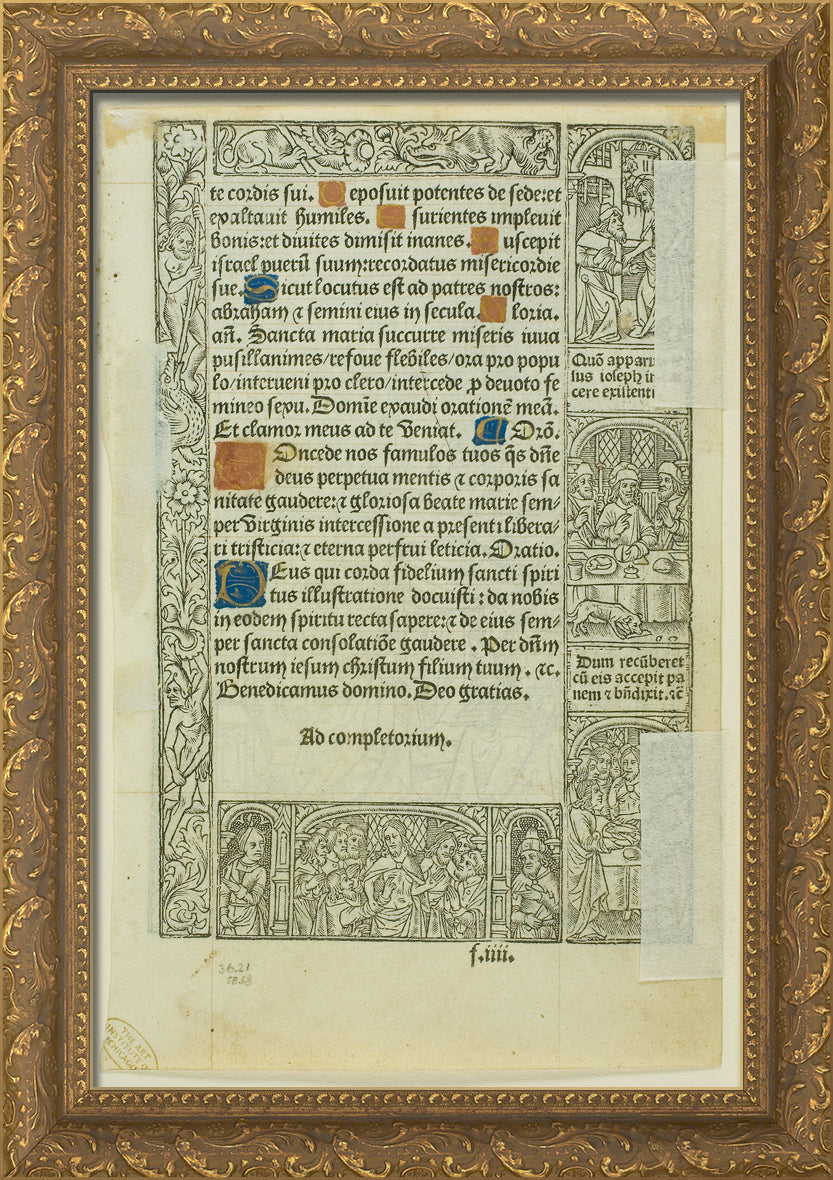 te cordis sui. D eposuit potentes de sede:et
exaltauit humiles. E surientes impleuit
bonis:et diuites dimisit inanes. S uscepit
israel puerū suum:recordatus misericordie
sue. Sicut locutus est ad patres nostros:
abraham ⁊ semini eius in secula. G loria.
añ. Sancta maria succurre miseris iuua
pusillanimes/refoue flebiles/ora pro popu
lo/interueni pro clero/intercede ꝓ deuoto fe
mineo sexu. Domīe exaudi orationē meā.
Et clamor meus ad te veniat. Orō.
COncede nos famulos tuos q̄s dn̄e
deus perpetua mentis ⁊ corporis sa
nitate gaudere:⁊ gloriosa beate marie sem-
per virginis intercessione a presenti libera-
ri tristicia:⁊ eterna perfrui leticia. Oratio.
DEus qui corda fidelium sancti spiri
tus illustratione docuisti : da nobis
in eodem spiritu recta sapere:⁊ de eius sem-
per sancta consolatiōe gaudere . Per dn̄m
nostrum iesum christum filium tuum . ⁊c.
Benedicamus domino. Deo gratias.
Ad completorium.
Quō apparu
ius ioseph in
cere existenti
Dum recūberet
cū eis accepit pa
nem ⁊ bn̄dixit. ⁊c̄
f.iiii.
36.21
THE ART
INSTITUTE OF
CHICAGO